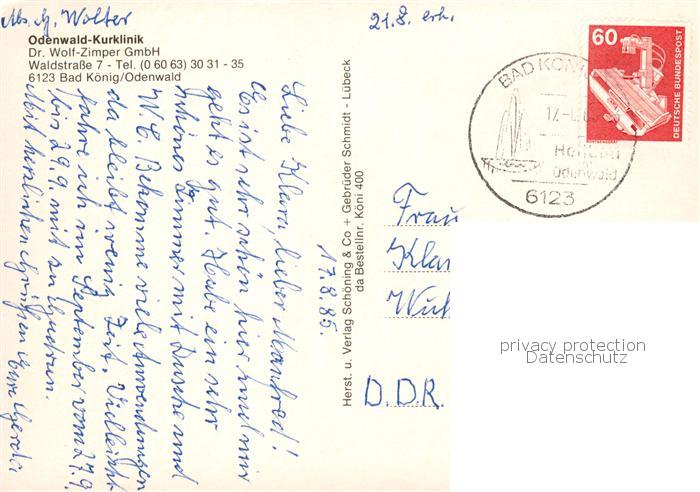 Abs. G. Wolter
21.8. erh.
Odenwald-Kurklinik
Dr. Wolf-Zimper GmbH
Waldstraße 7 - Tel. (0 60 63) 30 31 - 35
6123 Bad König/Odenwald
17.8.85.
Liebe Klara, lieber Manfred!
Es ist sehr schön hier und mir
geht es gut. Habe ein sehr
schönes Zimmer mit Dusche und
W.C. Bekomme viele Anwendungen
da bleibt wenig Zeit. Vielleicht
fahre ich im September vom 27.9.
bis 29.9. mit zu
Mit herzlichen Grüßen Eure Gerda
Herst. u. Verlag Schöning & Co + Gebrüder Schmidt - Lübeck
da Bestellnr. Köni 400
60
DEUTSCHE BUNDESPOST
BAD KÖNI
17.-
Odenwald
6123
Frau
Kla
D.D.R.
privacy protection
Datenschutz